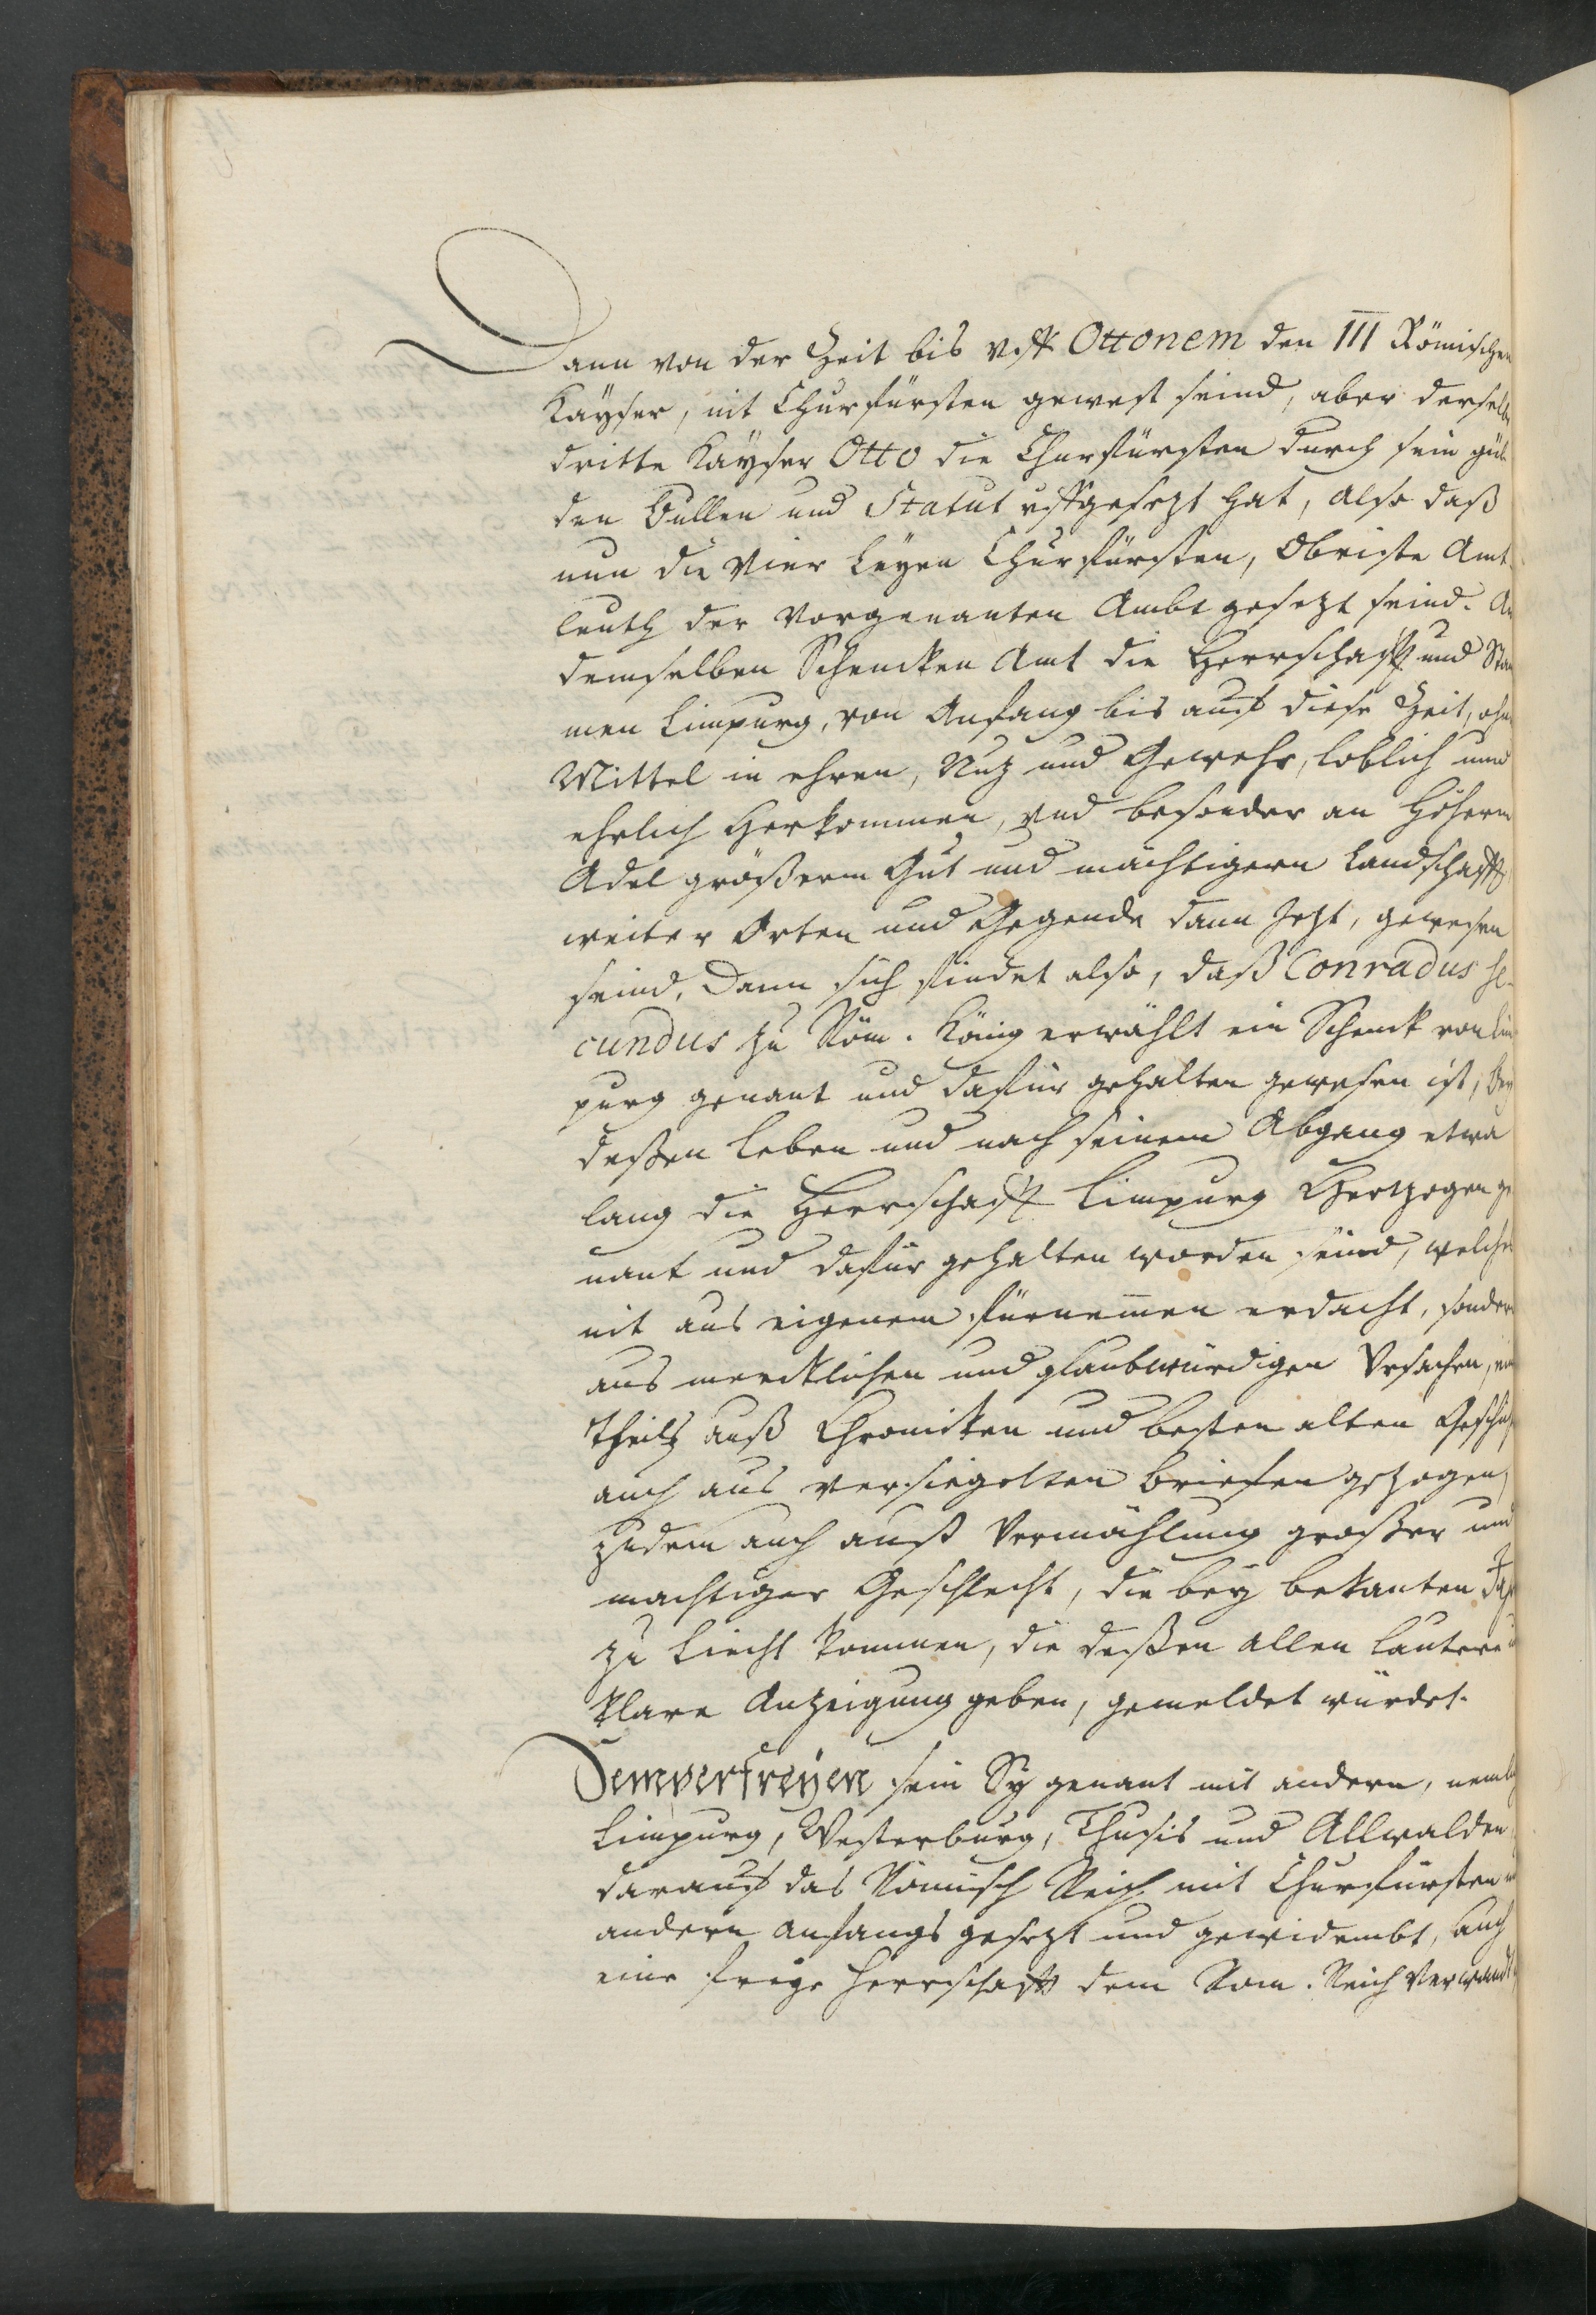 Dann von der Zeit bis vff Ottonem den III Römischen
Kayser, nit Churfürsten gewest seind, aber derselb
dritte Kayser Otto die Churfürsten durch sein gül
den Bullen und Statut uffgesezt hat, also daß
nun die Vier Leyen Churfürsten, Obriste Amt
leuth der Vorgenanten Ambt gesezt seind.
demselben Schencken Amt die Herrschafft und Stam
men Limpurg, von Anfang bis auff diese Zeit, ohne
Mittel in ehren, Nuz und Gewehr, loblich und
ehrlich Herkommen, und besonder an Höherm
Adel größerm Gut und mächtigern Landschafft
weiter Orten und Gegende dann Jezt, gewesen
seind, Dann sich findet also, daß Conradus se-
cundus zu Röm. König erwählt ein Schenck von Lim
purg genant und dafür gehalten gewesen ist, Bey
deßen Leben und nach seinem Abgang etwa
lang die Herrschafft Limpurg Hertzogen ge
nant und dafür gehalten worden seind, welches
nit aus eigenem fürnemen erdacht, sondern
aus mercklichen und glaubwürdigen Ursachen, ein
Theils auß Chronicken und besten alten Geschich
auch aus versiegelten Briefen gezogen,
zudem auch auß Vermählung großer und
mächtiger Geschlecht, die bey bekanten
zu Liecht kommen, die deßen allen lautere
klare Anzeigung geben, gemeldet würdet.
Semperfreyen sein Sy genant mit andern, nemlich
Limpurg, Westerburg, Thusis und Allwalden
darauff das Römisch Reich mit Churfürsten und
andern anfangs gesezt und gewidembt, auch
eine freye Herrschafft dem Röm. Reich Verwandt